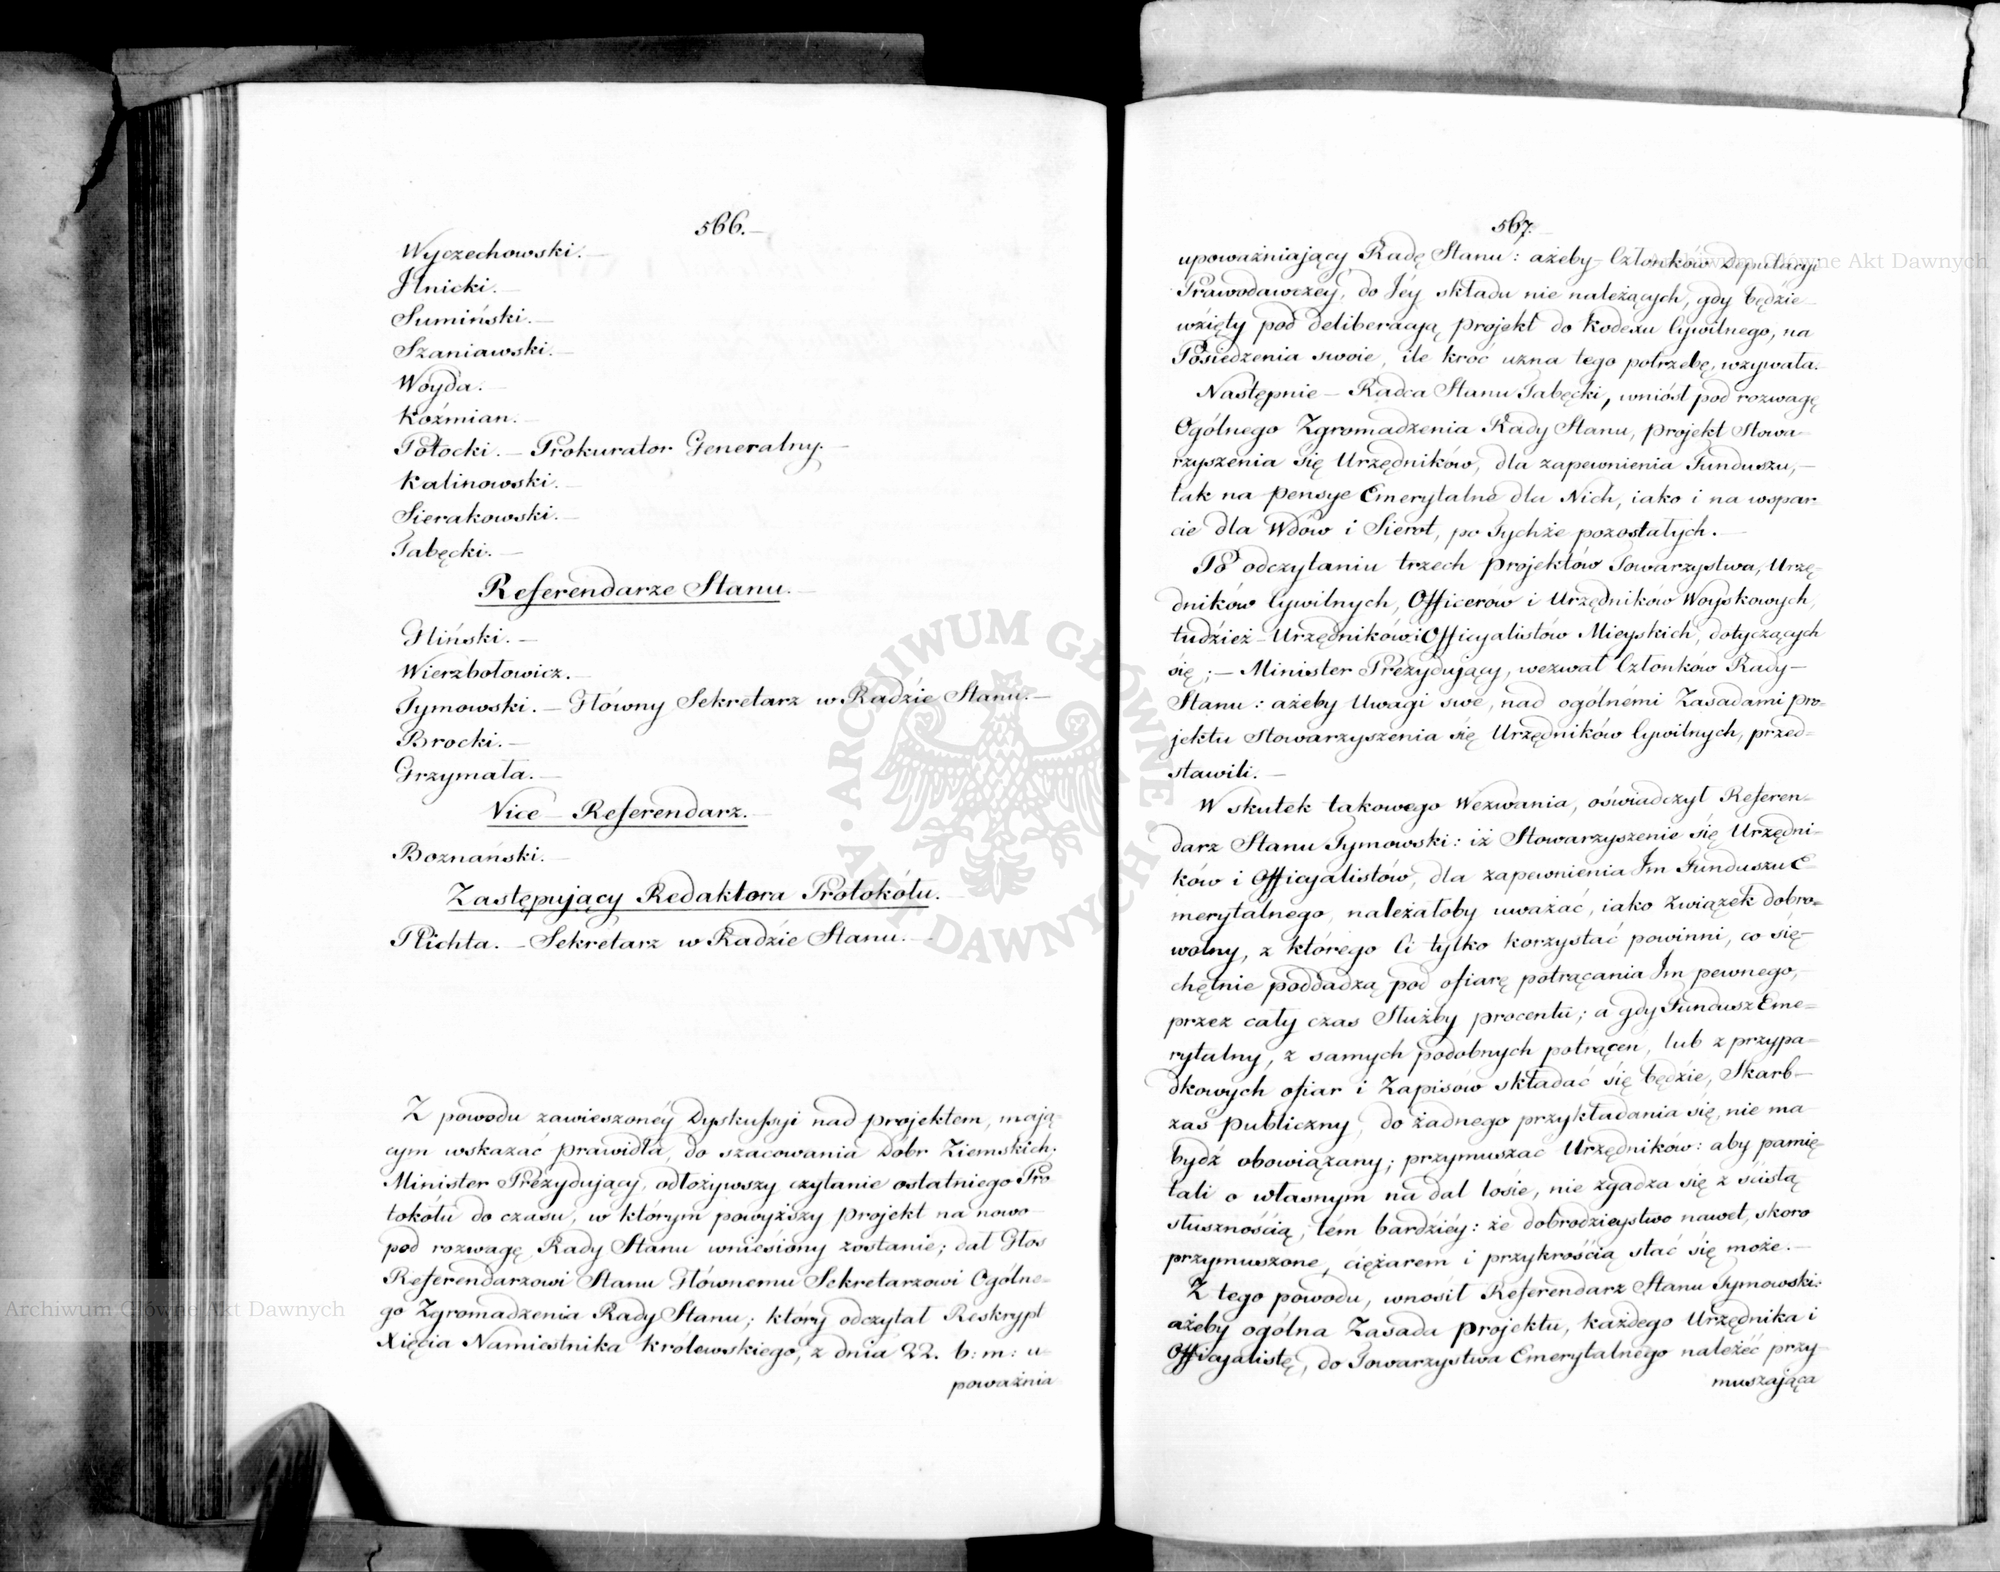 566.—
Wyczechowski.—
Ilnicki.—
Sumiński.—
Szaniawski.—
Woyda.—
Koźmian.—
Potocki.— Prokurator Generalny.—
Kalinowski.—
Sierakowski.—
Tabęcki.—
Referendarze Stanu.—
Gliński.—
Wierzbołowicz.—
Tymowski.— Główny Sekretarz w Radzie Stanu.—
Brocki.—
Grzymała.—
Vice-Referendarz.—
Boznański.—
Zastępujący Redaktora Protokółu.—
Plichta.— Sekretarz w Radzie Stanu.—
Z powodu zawieszonéy Dyskussyi nad projektem, mają-
cym wskazać prawidła, do szacowania Dóbr Ziemskich;
Minister Prezydujący, odłożywszy czytanie ostatniego Pro-
tokółu do czasu, w którym powyższy projekt na nowo
pod rozwagę Rady Stanu wniesiony zostanie; dał Głos
Referendarzowi Stanu Głównemu Sekretarzowi Ogólne-
go Zgromadzenia Rady Stanu; który odczytał Reskrypt
Xięcia Namiestnika Królewskiego, z dnia 22. b: m: u-
poważnia
567.
upoważniający Radę Stanu: ażeby Członków Deputacyi
Prawodawczéy, do Jéy składu nie należących, gdy będzie
wzięty pod deliberacją projekt do Kodexu Cywilnego, na
Posiedzenia swoie, ile kroć uzna tego potrzebę, wzywała.—
Następnie — Radca Stanu Tabęcki, wniósł pod rozwagę
Ogólnego Zgromadzenia Rady Stanu, projekt Stowa-
rzyszenia się Urzędników, dla zapewnienia Funduszu,—
tak na pensye Emerytalne dla Nich, iako i na wspar-
cie dla Wdów i Sierot, po Tychże pozostałych.—
Po odczytaniu trzech projektów Towarzystwa, Urzę-
dników Cywilnych, Officerów i Urzędników Woyskowych,
tudzież Urzędników i Officyalistów Mieyskich, dotyczących
się;— Minister Prezydujący, wezwał Członków Rady—
Stanu: ażeby Uwagi swe, nad ogólnémi Zasadami pro-
jektu Stowarzyszenia się Urzędników Cywilnych, przed-
stawili.—
W skutek takowego Wezwania, oświadczył Referen-
darz Stanu Tymowski: iż Stowarzyszenie się Urzędni-
ków i Officyalistów, dla zapewnienia Im Funduszu E-
merytalnego, należałoby uważać, iako Związek dobro-
wolny, z którego Ci tylko korzystać powinni, co się
chętnie poddadzą pod ofiarę potrącania Im pewnego,—
przez cały czas Służby procentu; a gdy Fundusz Eme-
rytalny, z samych podobnych potrąceń, lub z przypa-
dkowych ofiar i Zapisów składać się będzie, Skarb—
zaś publiczny, do żadnego przykładania się, nie ma
bydź obowiązany; przymuszać Urzędników: aby pamię-
tali o własnym na dal losie, nie zgadza się z ścisłą
słusznością; tém bardziéy: że dobrodzieystwo nawet, skoro
przymuszone, ciężarem i przykrością stać się może.—
Z tego powodu, wnosił Referendarz Stanu Tymowski:
ażeby ogólna Zasada projektu, każdego Urzędnika i
Officyalistę, do Towarzystwa Emerytalnego należéć przy-
muszająca
ARCHIWUM GŁÓWNE AKT DAWNYCH
Archiwum Główne Akt Dawnych
Archiwum Główne Akt Dawnych